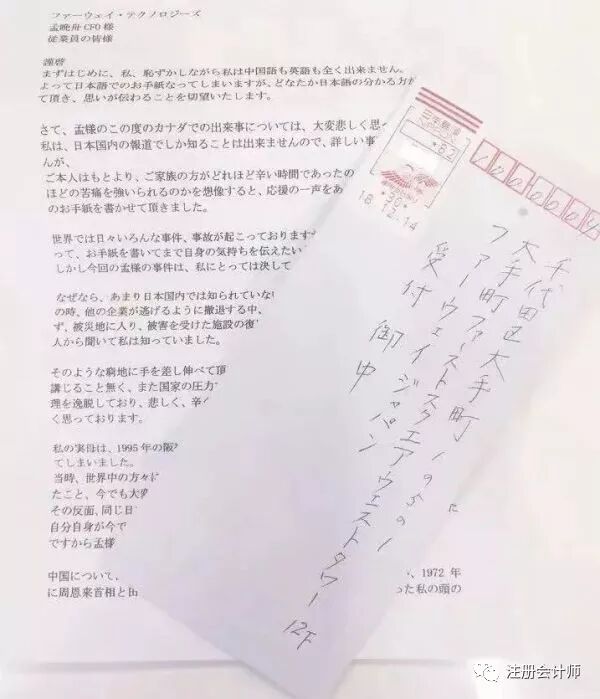 ファーウェイ・テクノロジーズ
孟晩舟 CFO 様
従業員の皆様
謹啓
まずはじめに、私、恥ずかしながら私は中国語も英語も全く出来ません。
よって日本語でのお手紙なってしまいますが、どなたか日本語の分かる方が
て頂き、思いが伝わることを切望いたします。
さて、孟様のこの度のカナダでの出来事については、大変悲しく思
私は、日本国内の報道でしか知ることは出来ませんので、詳しい事
んが、
ご本人はもとより、ご家族の方がどれほど辛い時間であったの
ほどの苦痛を強いられるのかを想像すると、応援の一声をあ
のお手紙を書かせて頂きました。
世界では日々いろんな事件、事故が起こっております
って、お手紙を書いてまで自身の気持ちを伝えたい
しかし今回の孟様の事件は、私にとっては決して
なぜなら、あまり日本国内では知られていな
の時、他の企業が逃げるように撤退する中、
ず、被災地に入り、被害を受けた施設の復
人から聞いて私は知っていました。
そのような窮地に手を差し伸べて頂
講じること無く、また国家の圧力
理を逸脱しており、悲しく、辛
く思っております。
私の実母は、1995 年の阪
てしまいました。
当時、世界中の方々に
たこと、今でも大変
その反面、同じ日
自分自身が今で
ですから孟様
中国について、
、1972 年
に周恩来首相と田
った私の頭の
三手郵便
*82
*30
18.12.14
千代田区大手町
大手町ファーストスクエアウエストタワー 12F
ファーウェイジャパン
受付 御中
注册会计师